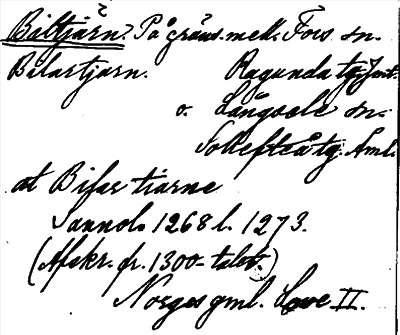 Bältjärn? På gräns. mell. Fors sn.
Bålastjärn. Ragunda tg. Jmt.
o. Långsele sn.
Sollefteå tg. Åml.
at Bifar tiarne
Sannol. 1268 l. 1273.
(Afskr. fr. 1300-talet.)
Norges gml. Love II.